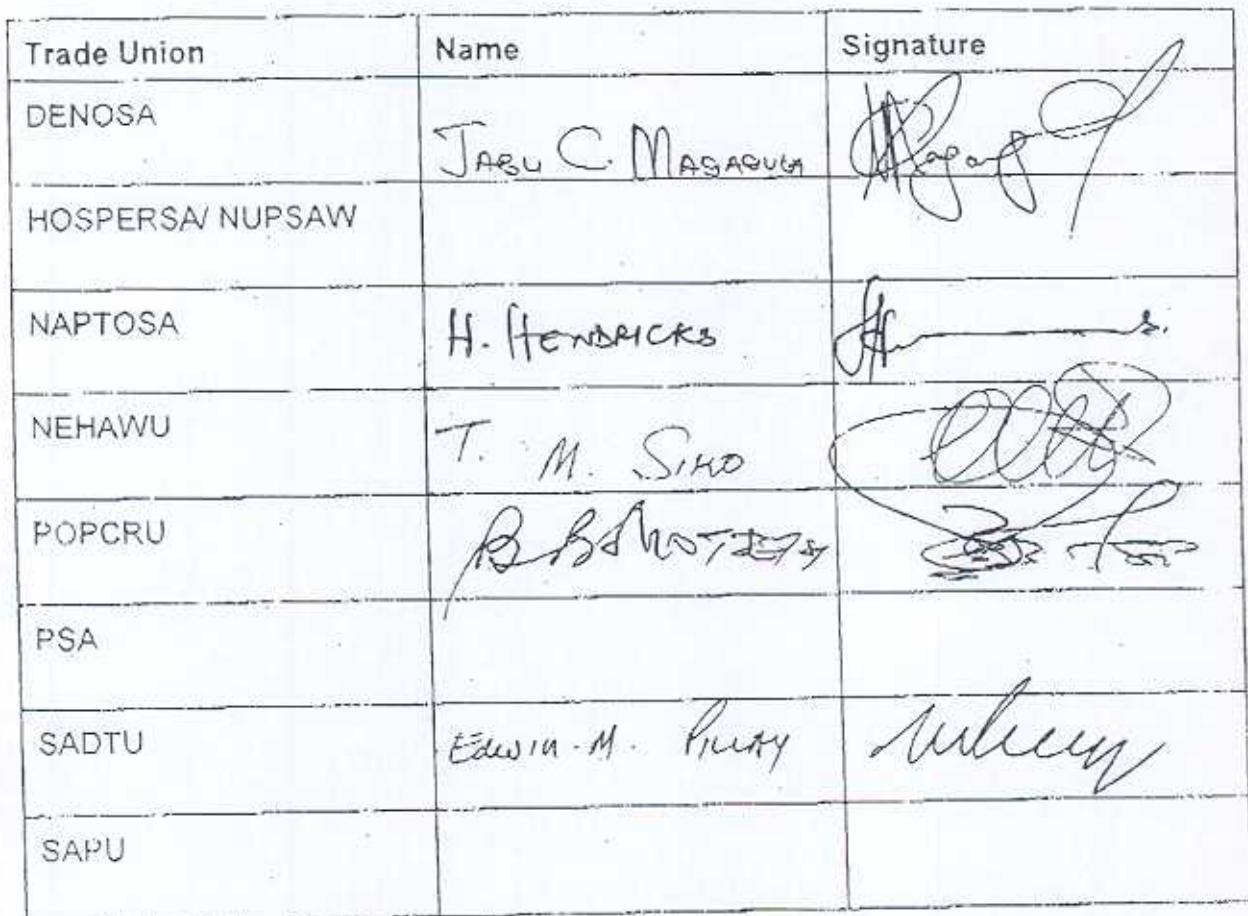 Trade Union Name Signature
DENOSA JABU C. MAGAGULA
HOSPERSA/ NUPSAW
NAPTOSA H. HENDRICKS
NEHAWU T. M. SIKO
POPCRU
PSA
SADTU Edwin. M. PILLAY
SAPU